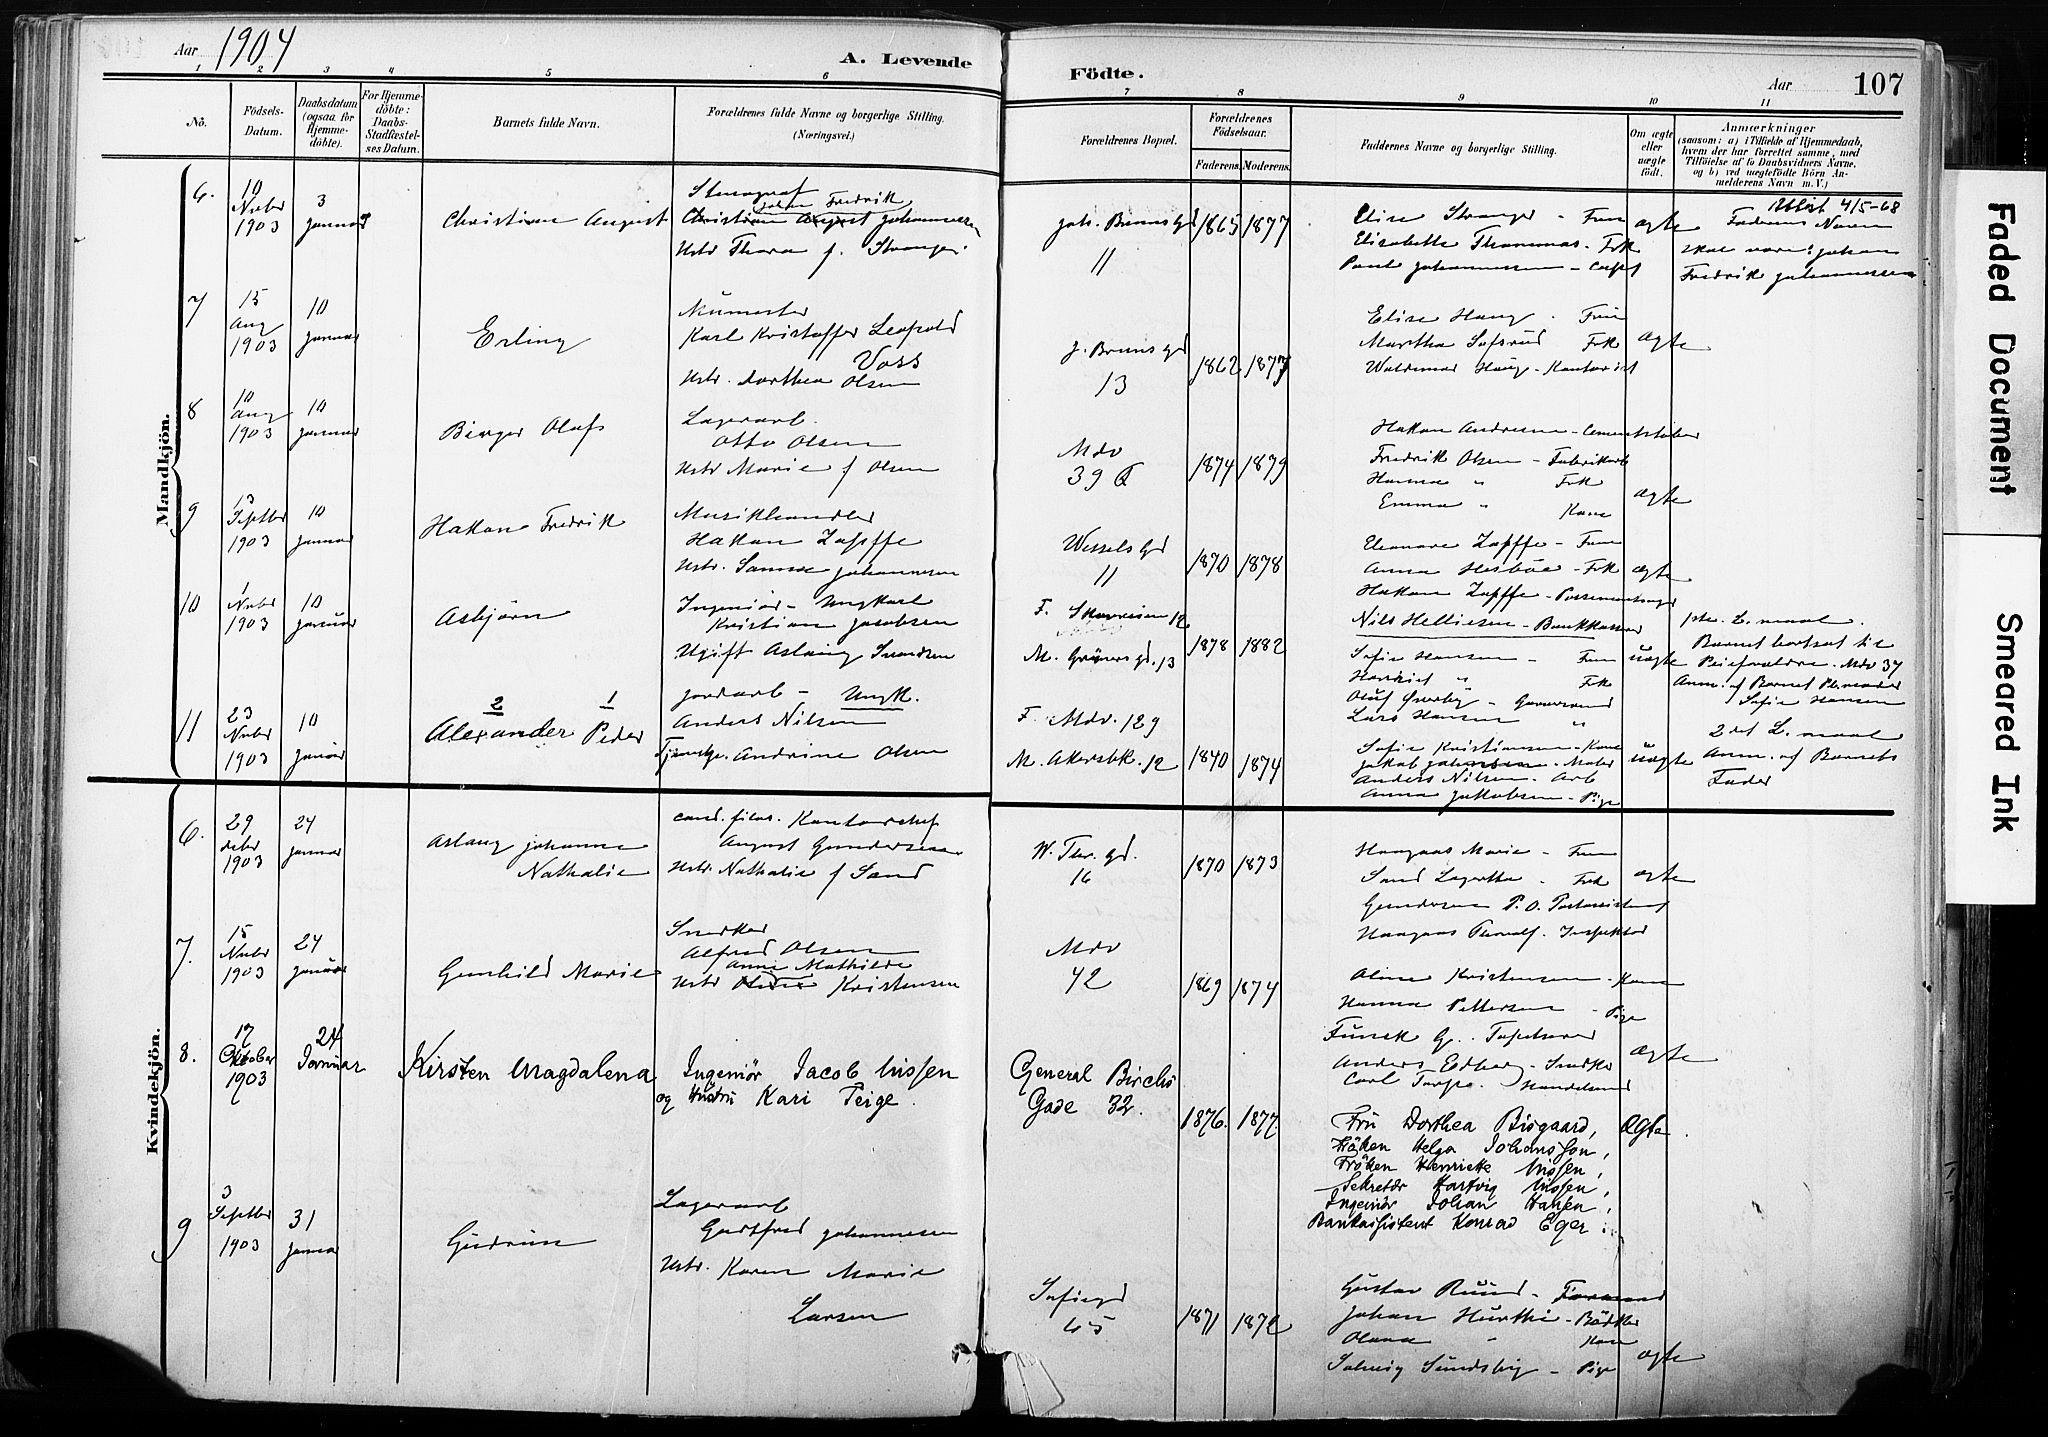 Aar 1904
A. Levende Födte.
Aar 107
1 2 3 4 5 6 7 8 9 10 11
No.
Födsels-Datum.
Daabsdatum (ogsaa for Hjemmedöbte).
For Hjemmedöbte: Daabs-Stadfæstelses Datum.
Barnets fulde Navn.
Forældrenes fulde Navne og borgerlige Stilling.
(Næringsvei.)
Forældrenes Bopæl.
Forældrenes Födselsaar.
Faderens. Moderens.
Faddernes Navne og borgerlige Stilling.
Om ægte eller uægte födt.
Anmærkninger
(saasom: a) i Tilfælde af Hjemmedaab, hvem der har forrettet samme, med Tilföielse af to Daabsvidners Navne. og b) ved uægtefödte Börn Anmelderens Navn m. V.)
Mandkjön.
6. 10 Nvbr 1903
3 januar
Christian August
Stenograf
Johan Fredrik
Christian August Johannessen
Hstr Thora f. Stranger
Joh. Bruns gd 11
1865 1877
Elise Stranger - Frue
Elisabeth Thommas - Frk
Paul Johannessen - Capt
ægte
Utskr 4/5-68
Faderens Navn
skal være: Johan
Fredrik Johannessen
7 15 Aug 1903
10 januar
Erling
Murmester
Karl Kristoffer Leopold
Voss
Hstr. Dorthea Olsen
J. Bruns gd 13
1862 1877
Elise Haug - Frue
Martha Frk
Waldemar Haug - Kontorist
ægte
8 10 Aug 1903
10 januar
Birger Olaf
Lagerarb.
Otto Olsen
Hstr Marie f Olsen
Mdv 39
1874 1879
Hakon Andersen - Cementstöber
Fredrik Olsen - Fabrikarb
Hanna " Frk
Emma " Kone
ægte
9 13 Septbr 1903
10 januar
Hakon Fredrik
Musikhandler
Hakon Zapffe
Hstr. Sanna Johannesen
Wessels gd 11
1870 1878
Eleonore Zapffe - Frue
Anna - Frk
Hakon Zapffe -
ægte
10 1 Nvbr 1903
10 januar
Asbjörn
Ingeniör - Ungkarl
Kristian Jacobsen
Ugift Aslaug Svendsen
F. 12
M. Grüners gd. 13
1878 1882
Nils Helliesen - Bankkasserer
Sofie Hansen - Frue
Harriet " Frk
Oluf Överby -
uægte
1ste L. maal.
Barnet bortsat til
Pleieforældre. Mdv 37
Anm. af Barnets Pleimoder
Sofie Hansen
11 23 Nvbr 1903
10 januar
2 1
Alexander Peder
Jordarb - Ungk.
Anders Nilsen
Tjenestpe. Andrine Olsen
F. Mdv. 129
M. Akersbk. 12
1870 1874
Lars Hansen "
Sofie Kristiansen - Kone
Jakob Johansen - Maler
Anders Nilsen - Arb
Anna Jakobsen - Pige
uægte
2det L. maal
Anm. af Barnets
Fader
Kvindekjön.
6. 29 1903
24 januar
Aslaug Johanne
Nathalie
cand. filos. Kontorchef
August Gundersen
Hstr. Nathalie f Sand
W. Thr. gd. 16
1870 1873
Haagaas Marie - Frue
Sand Lagertha - Frk
Gundersen P. O.
Haagaas - Inspektör
ægte
7. 15 Nvbr 1903
24 januar
Gunhild Marie
Snedker
Alfred Olsen
Anna Mathilde
Hstr Kristensen
Mdv 42
1869 1874
Oline Kristensen - Kone
Hanna Pettersen - Pige
Funck G. Tapetserer
Anders Edberg - Snedker
Carl Torpe - Handelsmd
ægte
8. 17 Oktober 1903
24 Januar
Kirsten Magdalena
Ingeniör Jacob Nissen
og Hustru Kari Teige.
General Birchs
Gade 32.
1876. 1877.
Fru Dorthea Bisgaard,
Fröken Helga Johansson,
Fröken Henriette Nissen,
Sekretær Hartvig Nissen,
Ingeniör Johan Hansen,
Bankassistent Konrad Eger.
Ægte.
9 3 Septbr 1903
31 januar
Gudrun
Lagerarb
Gottfred Johannesen
Hstr. Karen Marie
Larsen
Sofiegd 45
1871 1872
Gustav Ruud - Formand
Johan Hurthi - Bödker
Olava " Kone
Solveig Sundsby - Pige
ægte
Faded Document
Smeared Ink